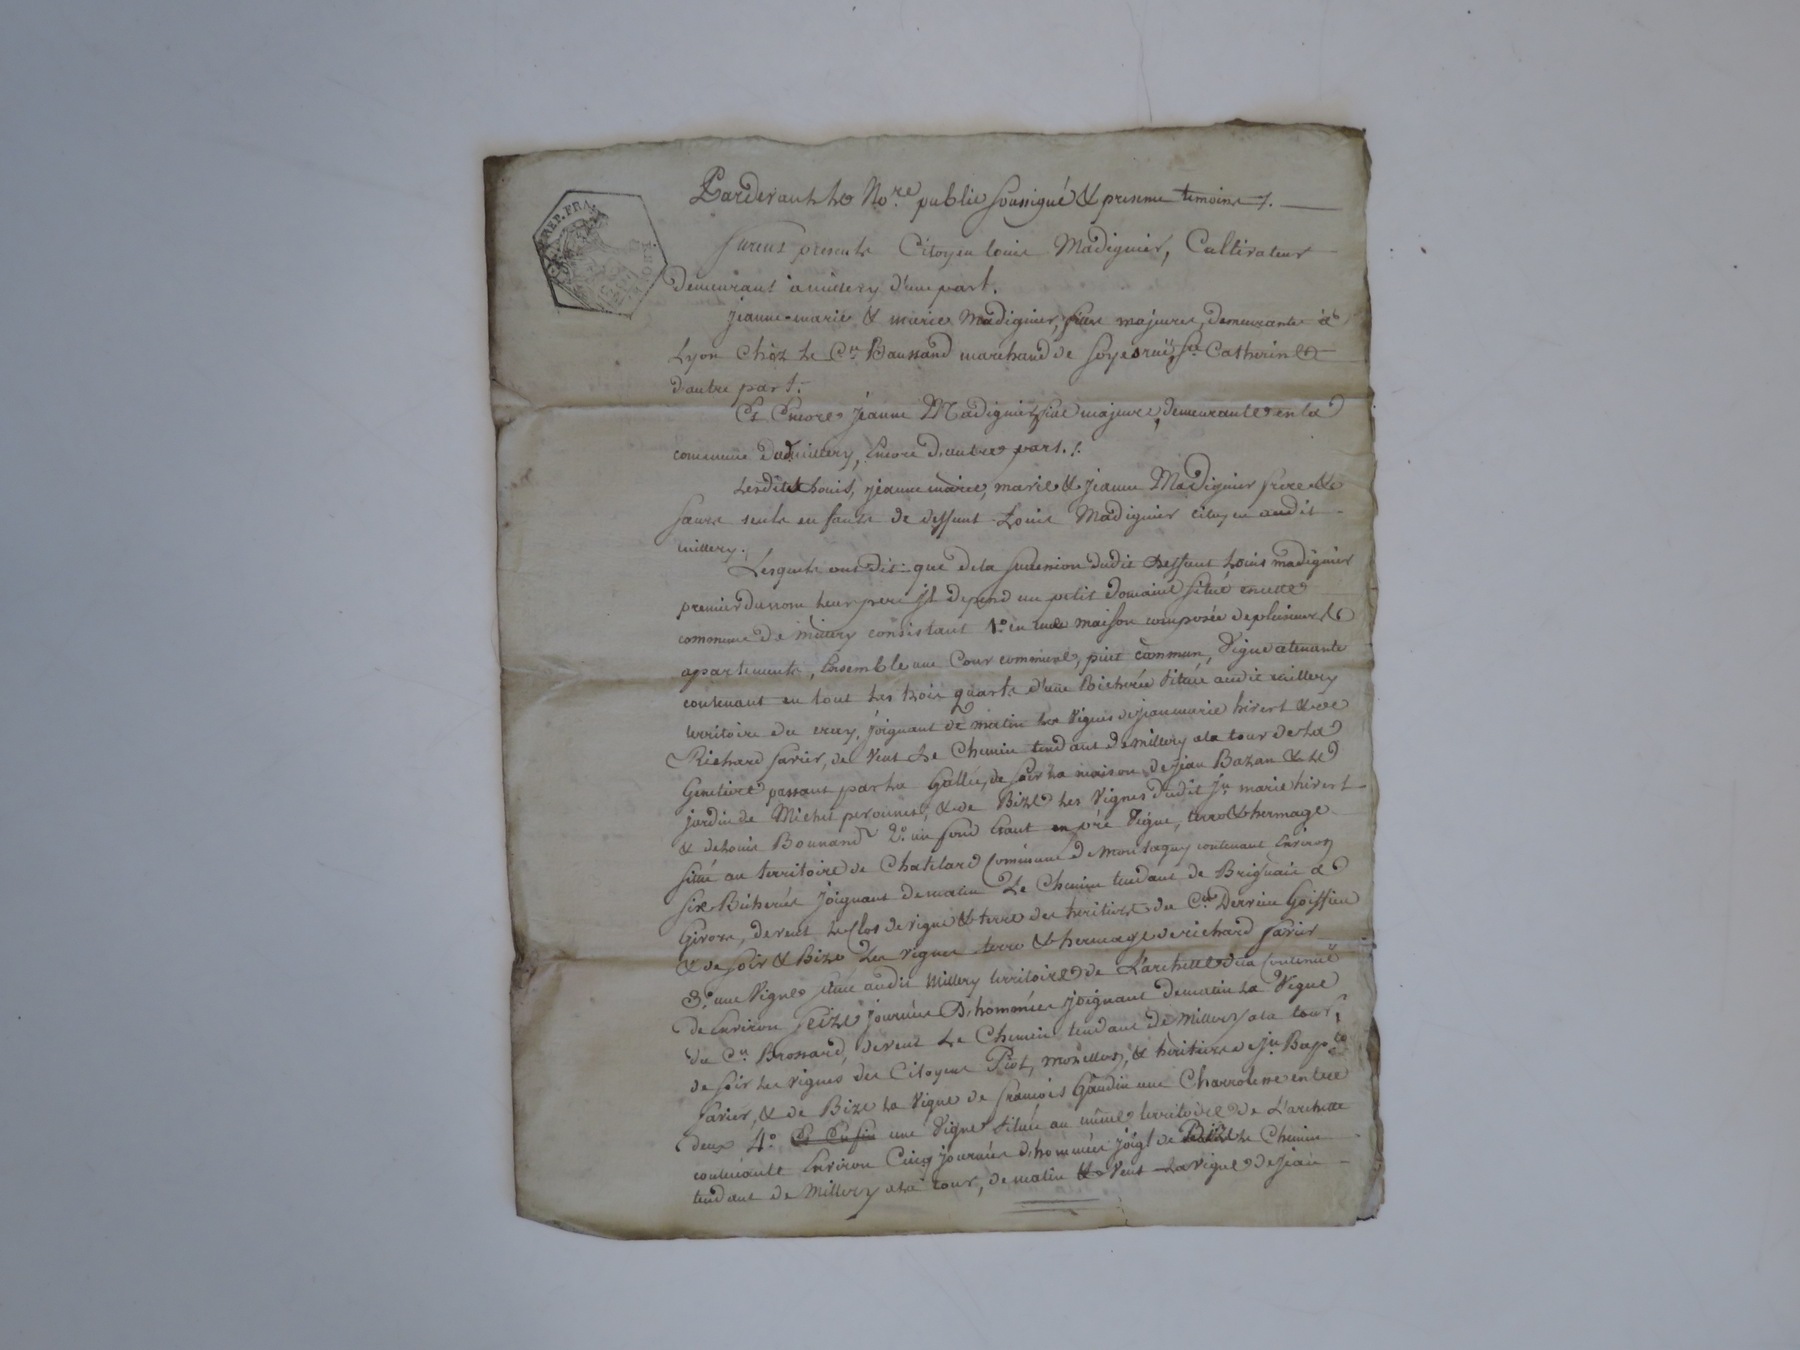 REP. FRA
Pardevant Le No.re public soussigné & presents temoins ;.
Furent presents Citoyen louis Madiguier, Cultivateur
demeurant a millery d'une part.
Jeanne-marie & marie Madiguier, filles majeures, demeurante à
Lyon chéz Le C.n Baussand marchand de soyes rue Ste Catherine
d'autre part.
Et Encore Jeanne Madiguier fille majeure, demeurante en la
commune de millery, Encore d'autre part.
Lesdits Louis, jéanne marie, marie & jeanne Madiguier frere &
sœurs seuls enfants de deffunt Louis Madiguier citoyen audit
millery.
Lesquels ont dit : que de la succession dudit Deffunt Louis madiguier
premier du nom leur pere il depend un petit domaine situé en cette
commune de millery consistant 1.o en une maison composée de plusieurs
apartements, Ensemble une Cour commune, puit commun, Vigne atenante
contenant en tout les trois quarts d'une Bicherée située audit millery
territoire du cray, joignant de matin les Vignes de jean marie hivert & de
Richard favier, de Vent Le Chemin tendant de millery a la tour de la
Genetiere passant par la Gallée, de soir la maison de jean Bazan & le
jardin de Michel peronnet, & de Bize les Vignes dudit jn marie hivert
& de louis Bounand 2.o un fond Etant en pré Vigne, terre & hermage
situé au territoire de Chatelard Commune de montagny contenant Environ
six Bicherées joignant de matin Le Chemin tendant de Brignais a
Givors, de vent le Clos de vigne & terre des heritiers du C.en Derrieu Goiffieu
& de soir & Bize Les vignes terre & hermage de richard favier
3.o une Vigne située audit Millery territoire de L'archette de la Contenue
de Environ seize journées D'hommées joignant de matin la Vigne
du C.n Brossard, de vent Le Chemin tendant de Millery a la tour,
de soir les vignes des Citoyens Piot, & heritiers de jn Bap.te
favier, & de Bize la Vigne de françois Gaudin une Charroliere entre
deux 4.o Et Enfin une Vigne située au même territoire de L'archette
contenante Environ Cinq journées d'hommées joigt de Bize le Chemin
tendant de Millery a la tour, de matin & Vent La vigne de jean